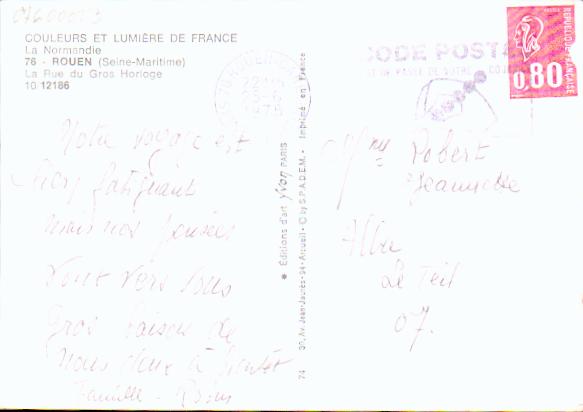 COULEURS ET LUMIÈRE DE FRANCE
La Normandie
76 - ROUEN (Seine-Maritime)
La Rue du Gros Horloge
10 12186
Notre voyage est
fatiguant
mais nos pensées
vont vers vous
Gros baiser de
nous deux à bientôt
Famille
✱ Éditions d'art yvon PARIS
30, Av. Jean-Jaurès - 94 - Arcueil - © by S.P.A.D.E.M. - Imprimé en France
74
CODE POSTAL
REPUBLIQUE FRANÇAISE
0.80
Robert
Jeannette
Alba
Le Teil
07.